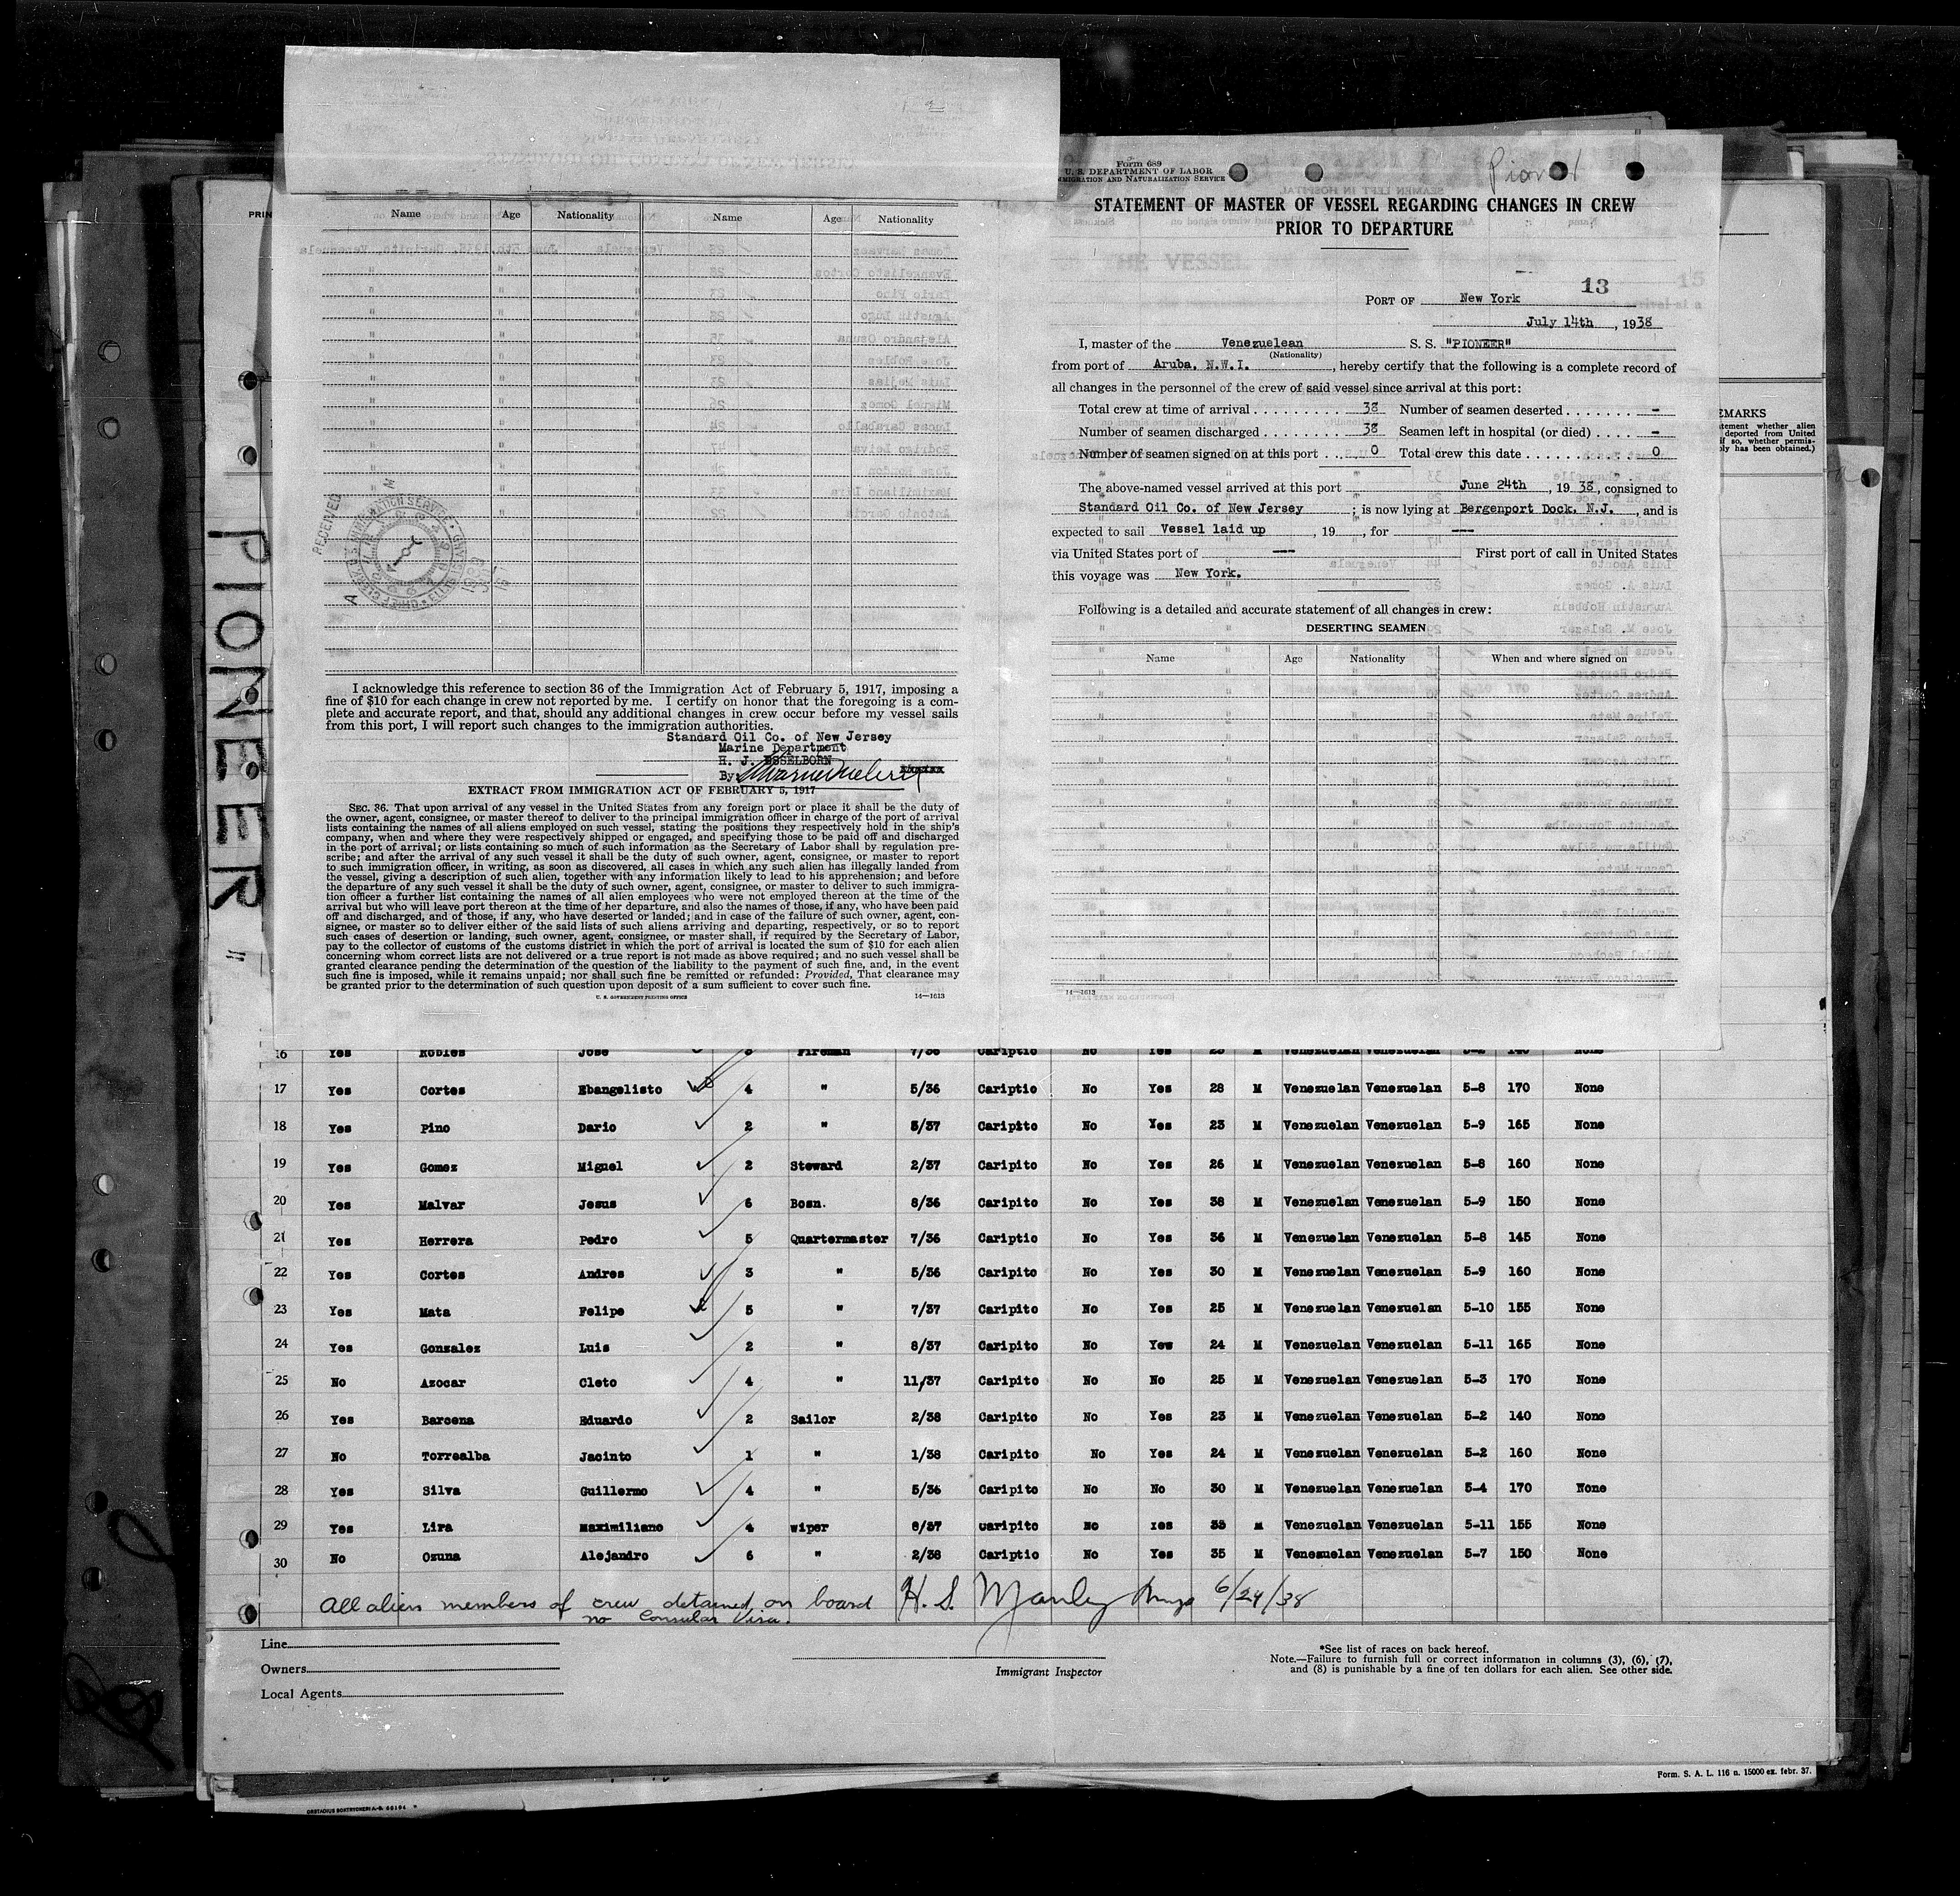 Form 689
U. S. DEPARTMENT OF LABOR
IMMIGRATION AND NATURALIZATION SERVICE
STATEMENT OF MASTER OF VESSEL REGARDING CHANGES IN CREW
PRIOR TO DEPARTURE
13
PORT OF New York
July 14th, 1938
I, master of the Venezuelean S. S. "PIONEER"
(Nationality)
from port of Aruba, N.W.I., hereby certify that the following is a complete record of
all changes in the personnel of the crew of said vessel since arrival at this port:
Total crew at time of arrival . . . . . . . . . 38 Number of seamen deserted . . . . . . . –
Number of seamen discharged . . . . . . . . 38 Seamen left in hospital (or died) . . . . –
Number of seamen signed on at this port . . . 0 Total crew this date . . . . . . . . . . . . 0
The above-named vessel arrived at this port June 24th, 1938, consigned to
Standard Oil Co. of New Jersey; is now lying at Bergenport Dock, N.J., and is
expected to sail Vessel laid up, 19 , for ---
via United States port of --- First port of call in United States
this voyage was New York.
Following is a detailed and accurate statement of all changes in crew:
DESERTING SEAMEN
Name Age Nationality When and where signed on
14—1613
Name Age Nationality Name Age Nationality
I acknowledge this reference to section 36 of the Immigration Act of February 5, 1917, imposing a
fine of $10 for each change in crew not reported by me. I certify on honor that the foregoing is a com-
plete and accurate report, and that, should any additional changes in crew occur before my vessel sails
from this port, I will report such changes to the immigration authorities.
Standard Oil Co. of New Jersey
Marine Department
H. J. ESSELBORN
By
EXTRACT FROM IMMIGRATION ACT OF FEBRUARY 5, 1917
SEC. 36. That upon arrival of any vessel in the United States from any foreign port or place it shall be the duty of
the owner, agent, consignee, or master thereof to deliver to the principal immigration officer in charge of the port of arrival
lists containing the names of all aliens employed on such vessel, stating the positions they respectively hold in the ship's
company, when and where they were respectively shipped or engaged, and specifying those to be paid off and discharged
in the port of arrival; or lists containing so much of such information as the Secretary of Labor shall by regulation pre-
scribe; and after the arrival of any such vessel it shall be the duty of such owner, agent, consignee, or master to report
to such immigration officer, in writing, as soon as discovered, all cases in which any such alien has illegally landed from
the vessel, giving a description of such alien, together with any information likely to lead to his apprehension; and before
the departure of any such vessel it shall be the duty of such owner, agent, consignee, or master to deliver to such immigra-
tion officer a further list containing the names of all alien employees who were not employed thereon at the time of the
arrival but who will leave port thereon at the time of her departure, and also the names of those, if any, who have been paid
off and discharged, and of those, if any, who have deserted or landed; and in case of the failure of such owner, agent, con-
signee, or master so to deliver either of the said lists of such aliens arriving and departing, respectively, or so to report
such cases of desertion or landing, such owner, agent, consignee, or master shall, if required by the Secretary of Labor,
pay to the collector of customs of the customs district in which the port of arrival is located the sum of $10 for each alien
concerning whom correct lists are not delivered or a true report is not made as above required; and no such vessel shall be
granted clearance pending the determination of the question of the liability to the payment of such fine, and, in the event
such fine is imposed, while it remains unpaid; nor shall such fine be remitted or refunded: Provided, That clearance may
be granted prior to the determination of such question upon deposit of a sum sufficient to cover such fine.
U. S. GOVERNMENT PRINTING OFFICE 14—1613
RECEIVED
PIONEER "
16 Yes Robles Jose Fireman 7/36 Cariptio No Yes 23 M Venezuelan Venezuelan 5-2 140 None
17 Yes Cortes Ebangelisto 4 " 5/36 Cariptio No Yes 28 M Venezuelan Venezuelan 5-8 170 None
18 Yes Pino Dario 2 " 5/37 Caripito No Yes 23 M Venezuelan Venezuelan 5-9 165 None
19 Yes Gomez Miguel 2 Steward 2/37 Caripito No Yes 26 M Venezuelan Venezuelan 5-8 160 None
20 Yes Malvar Jesus 6 Bosn. 8/36 Caripito No Yes 38 M Venezuelan Venezuelan 5-9 150 None
21 Yes Herrera Pedro 5 Quartermaster 7/36 Cariptio No Yes 36 M Venezuelan Venezuelan 5-8 145 None
22 Yes Cortes Andres 3 " 5/36 Caripito No Yes 30 M Venezuelan Venezuelan 5-9 160 None
23 Yes Mata Felipe 5 " 7/37 Caripito No Yes 25 M Venezuelan Venezuelan 5-10 155 None
24 Yes Gonzalez Luis 2 " 8/37 Caripito No Yew 24 M Venezuelan Venezuelan 5-11 165 None
25 No Azocar Cleto 4 " 11/37 Caripito No No 25 M Venezuelan Venezuelan 5-3 170 None
26 Yes Barcena Eduardo 2 Sailor 2/38 Caripito No Yes 23 M Venezuelan Venezuelan 5-2 140 None
27 No Torrealba Jacinto 1 " 1/38 Caripito No Yes 24 M Venezuelan Venezuelan 5-2 160 None
28 Yes Silva Guillermo 4 " 5/36 Caripito No No 30 M Venezuelan Venezuelan 5-4 170 None
29 Yes Lira Maximiliano 4 wiper 8/37 Caripito No Yes 33 M Venezuelan Venezuelan 5-11 155 None
30 No Ozuna Alejandro 6 " 2/38 Cariptio No Yes 35 M Venezuelan Venezuelan 5-7 150 None
All aliens members of crew detained on board H. S. Manley 6/24/38
no Consular Visa.
Line
Owners
Local Agents
Immigrant Inspector
*See list of races on back hereof.
Note.—Failure to furnish full or correct information in columns (3), (6), (7),
and (8) is punishable by a fine of ten dollars for each alien. See other side.
Form. S. A. L. 116 n. 15000 ex. febr. 37.